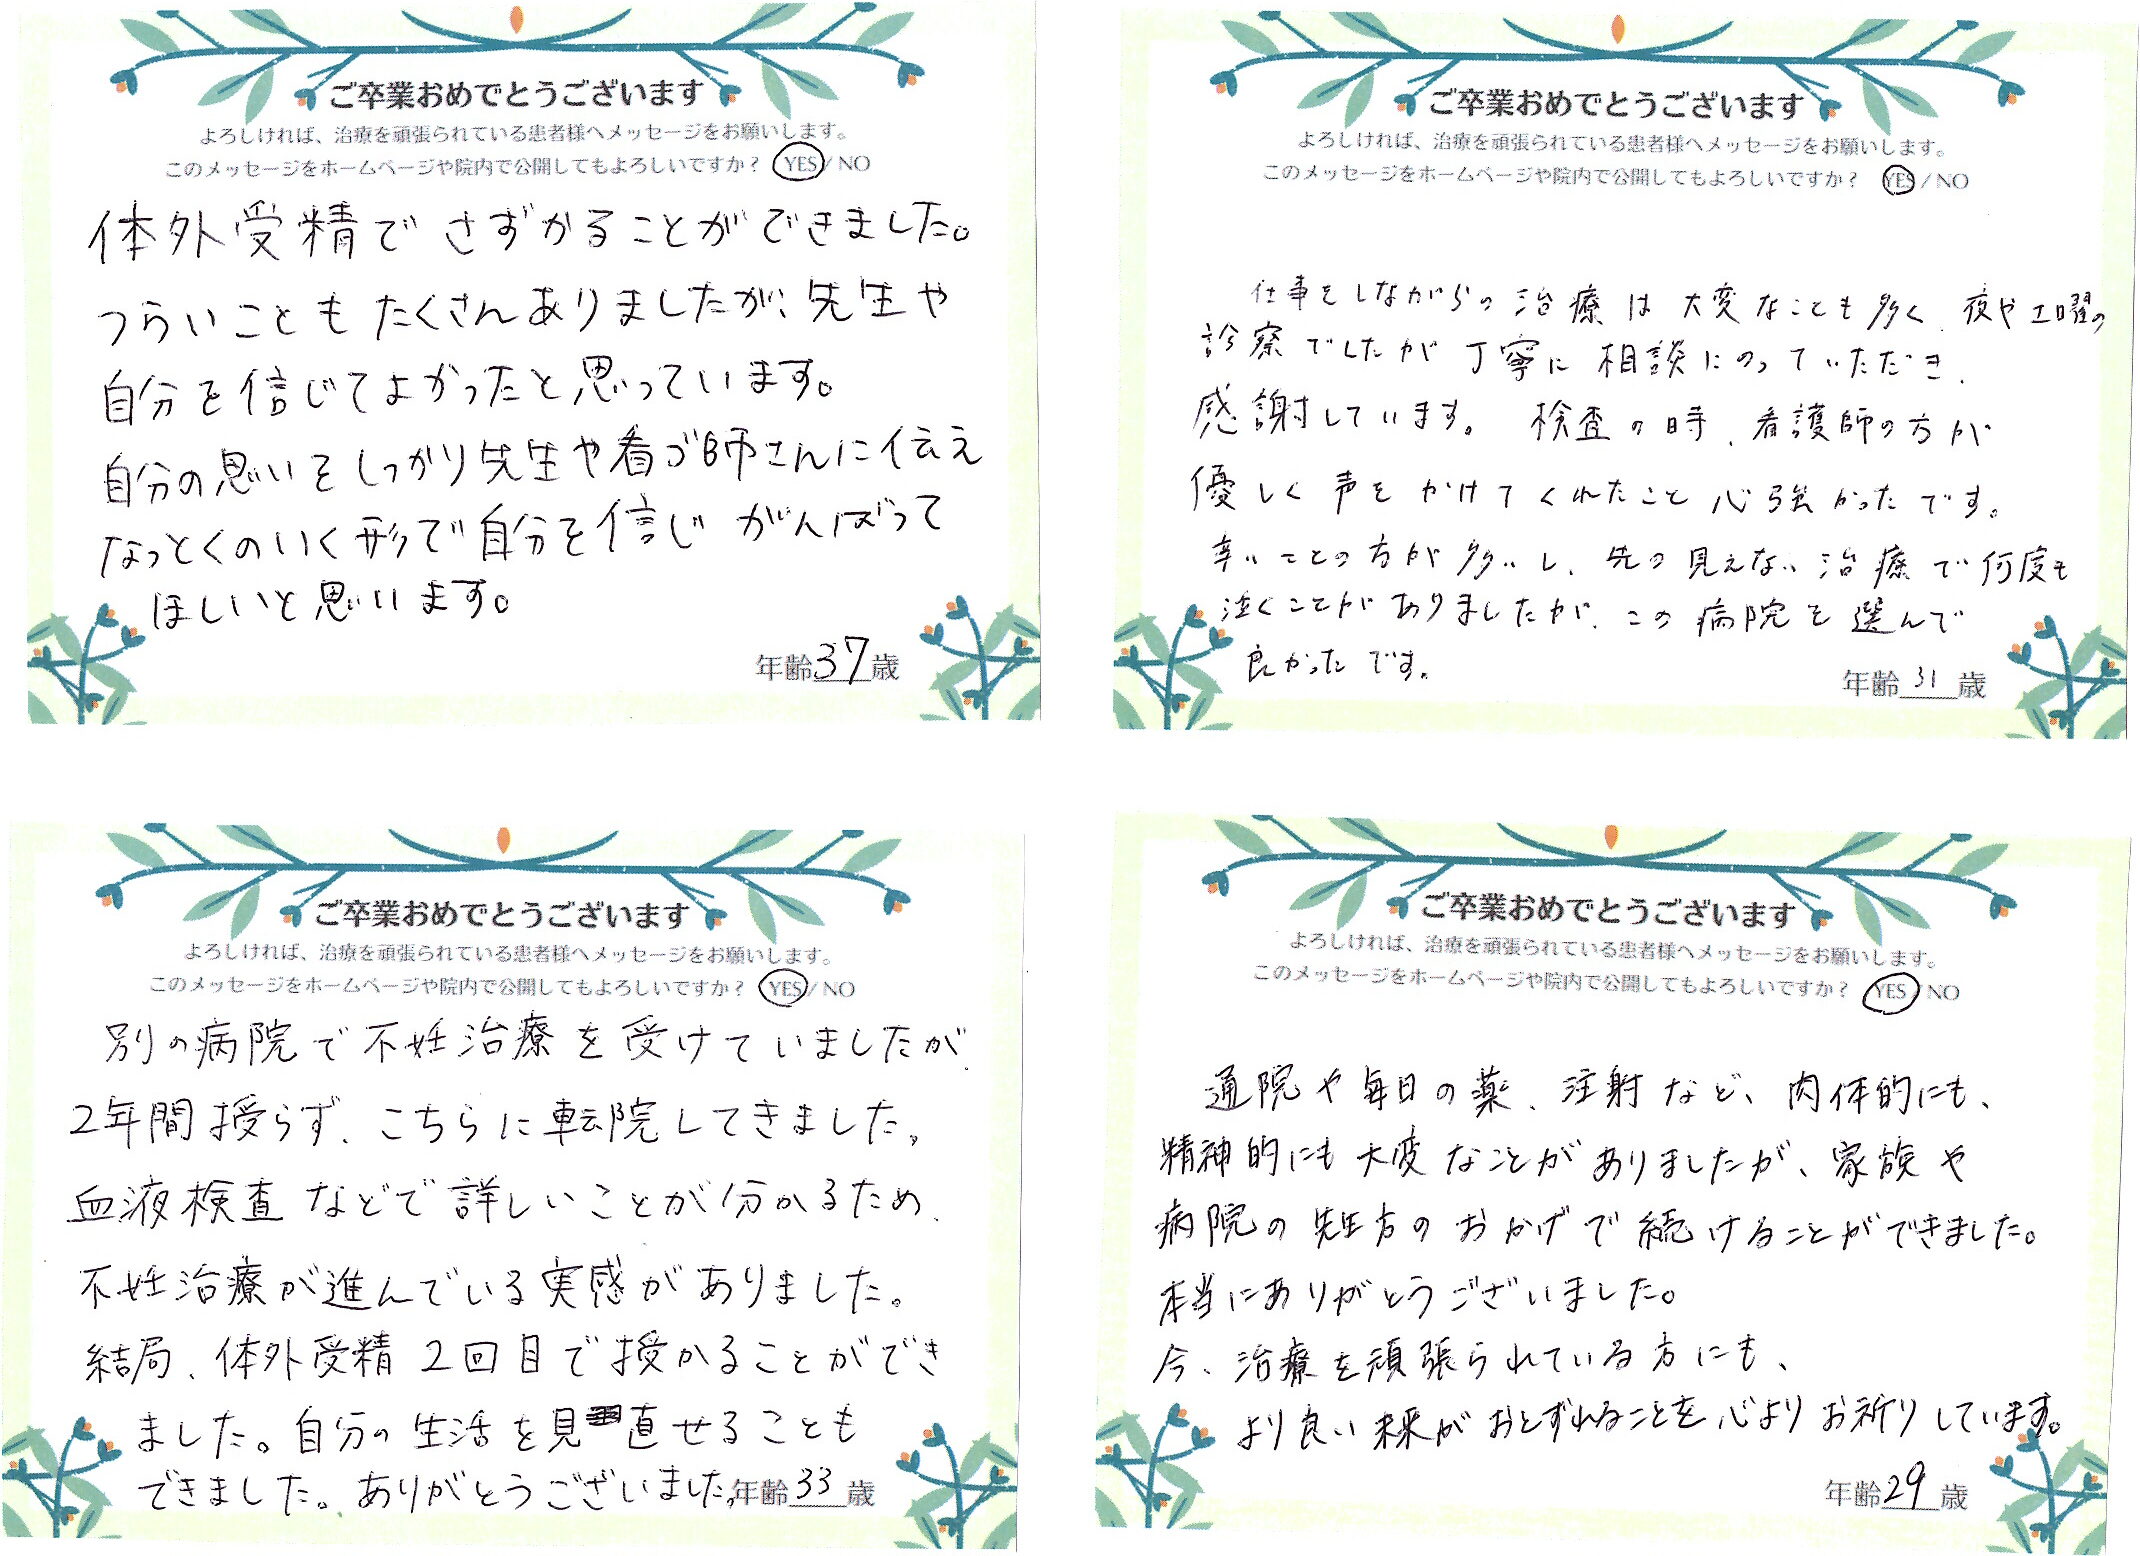 ご卒業おめでとうございます
よろしければ、治療を頑張られている患者様へメッセージをお願いします。
このメッセージをホームページや院内で公開してもよろしいですか？ YES / NO
体外受精でさずかることができました。
つらいこともたくさんありましたが、先生や
自分を信じてよかったと思っています。
自分の思いをしっかり先生や看ゴ師さんに伝え
なっとくのいく形で自分を信じがんばって
ほしいと思います。
年齢 37 歳
ご卒業おめでとうございます
よろしければ、治療を頑張られている患者様へメッセージをお願いします。
このメッセージをホームページや院内で公開してもよろしいですか？ YES / NO
仕事をしながらの治療は大変なことも多く、夜や土曜の
診察でしたが丁寧に相談にのっていただき、
感謝しています。検査の時、看護師の方が
優しく声をかけてくれたこと心強かったです。
辛いことの方が多いし、先の見えない治療で何度も
泣くことがありましたが、この病院を選んで
良かったです。
年齢 31 歳
ご卒業おめでとうございます
よろしければ、治療を頑張られている患者様へメッセージをお願いします。
このメッセージをホームページや院内で公開してもよろしいですか？ YES / NO
別の病院で不妊治療を受けていましたが、
2年間授らず、こちらに転院してきました。
血液検査などで詳しいことが分かるため、
不妊治療が進んでいる実感がありました。
結局、体外受精2回目で授かることができ
ました。自分の生活を見直せることも
できました。ありがとうございました。
年齢 33 歳
ご卒業おめでとうございます
よろしければ、治療を頑張られている患者様へメッセージをお願いします。
このメッセージをホームページや院内で公開してもよろしいですか？ YES / NO
通院や毎日の薬、注射など、肉体的にも、
精神的にも大変なことがありましたが、家族や
病院の先生方のおかげで続けることができました。
本当にありがとうございました。
今、治療を頑張られている方にも、
より良い未来がおとずれることを心よりお祈りしています。
年齢 29 歳